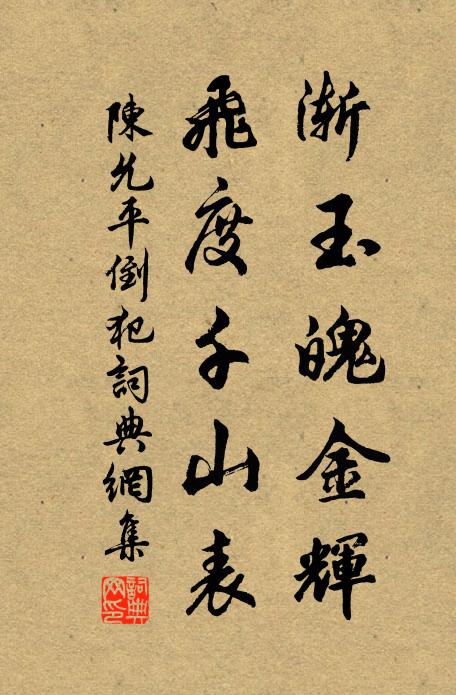 渐玉魄金輝
飛度千山表
陳允平倒犯詞典網集
詞典網印